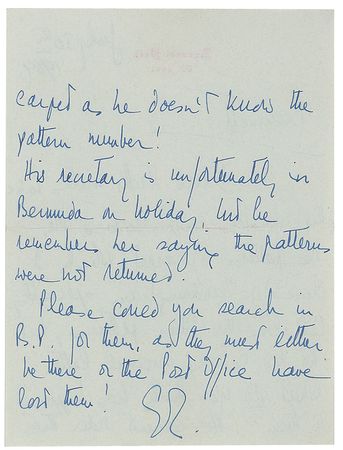 carpet as he doesn't know the
pattern number!
His secretary is unfortunately in
Bermuda on holiday, but he
remembers her saying the patterns
were not returned.
Please could you search in
B.P. for them, as they must either
be there or the Post Office have
lost them!